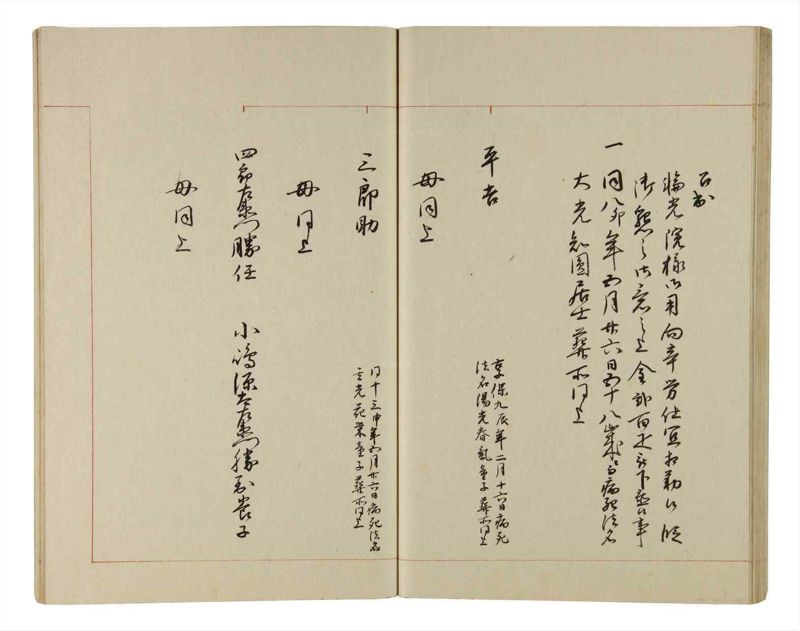 瑜光院様御用向辛労仕冥相勤候段
御懇之御意之上金弐百疋被下置候事
一同八卯年五月廿六日五十八歳ニ而病死法名
大光知圓居士葬所同上
平吉
享保九辰年二月十六日病死
法名陽光春氣童子葬所同上
母同上
三郎助
同十三申年五月廿六日病死法名
玄光花葉童子葬所同上
母同上
四郎左衛門勝任
小嶋源左衛門勝 養子
母同上